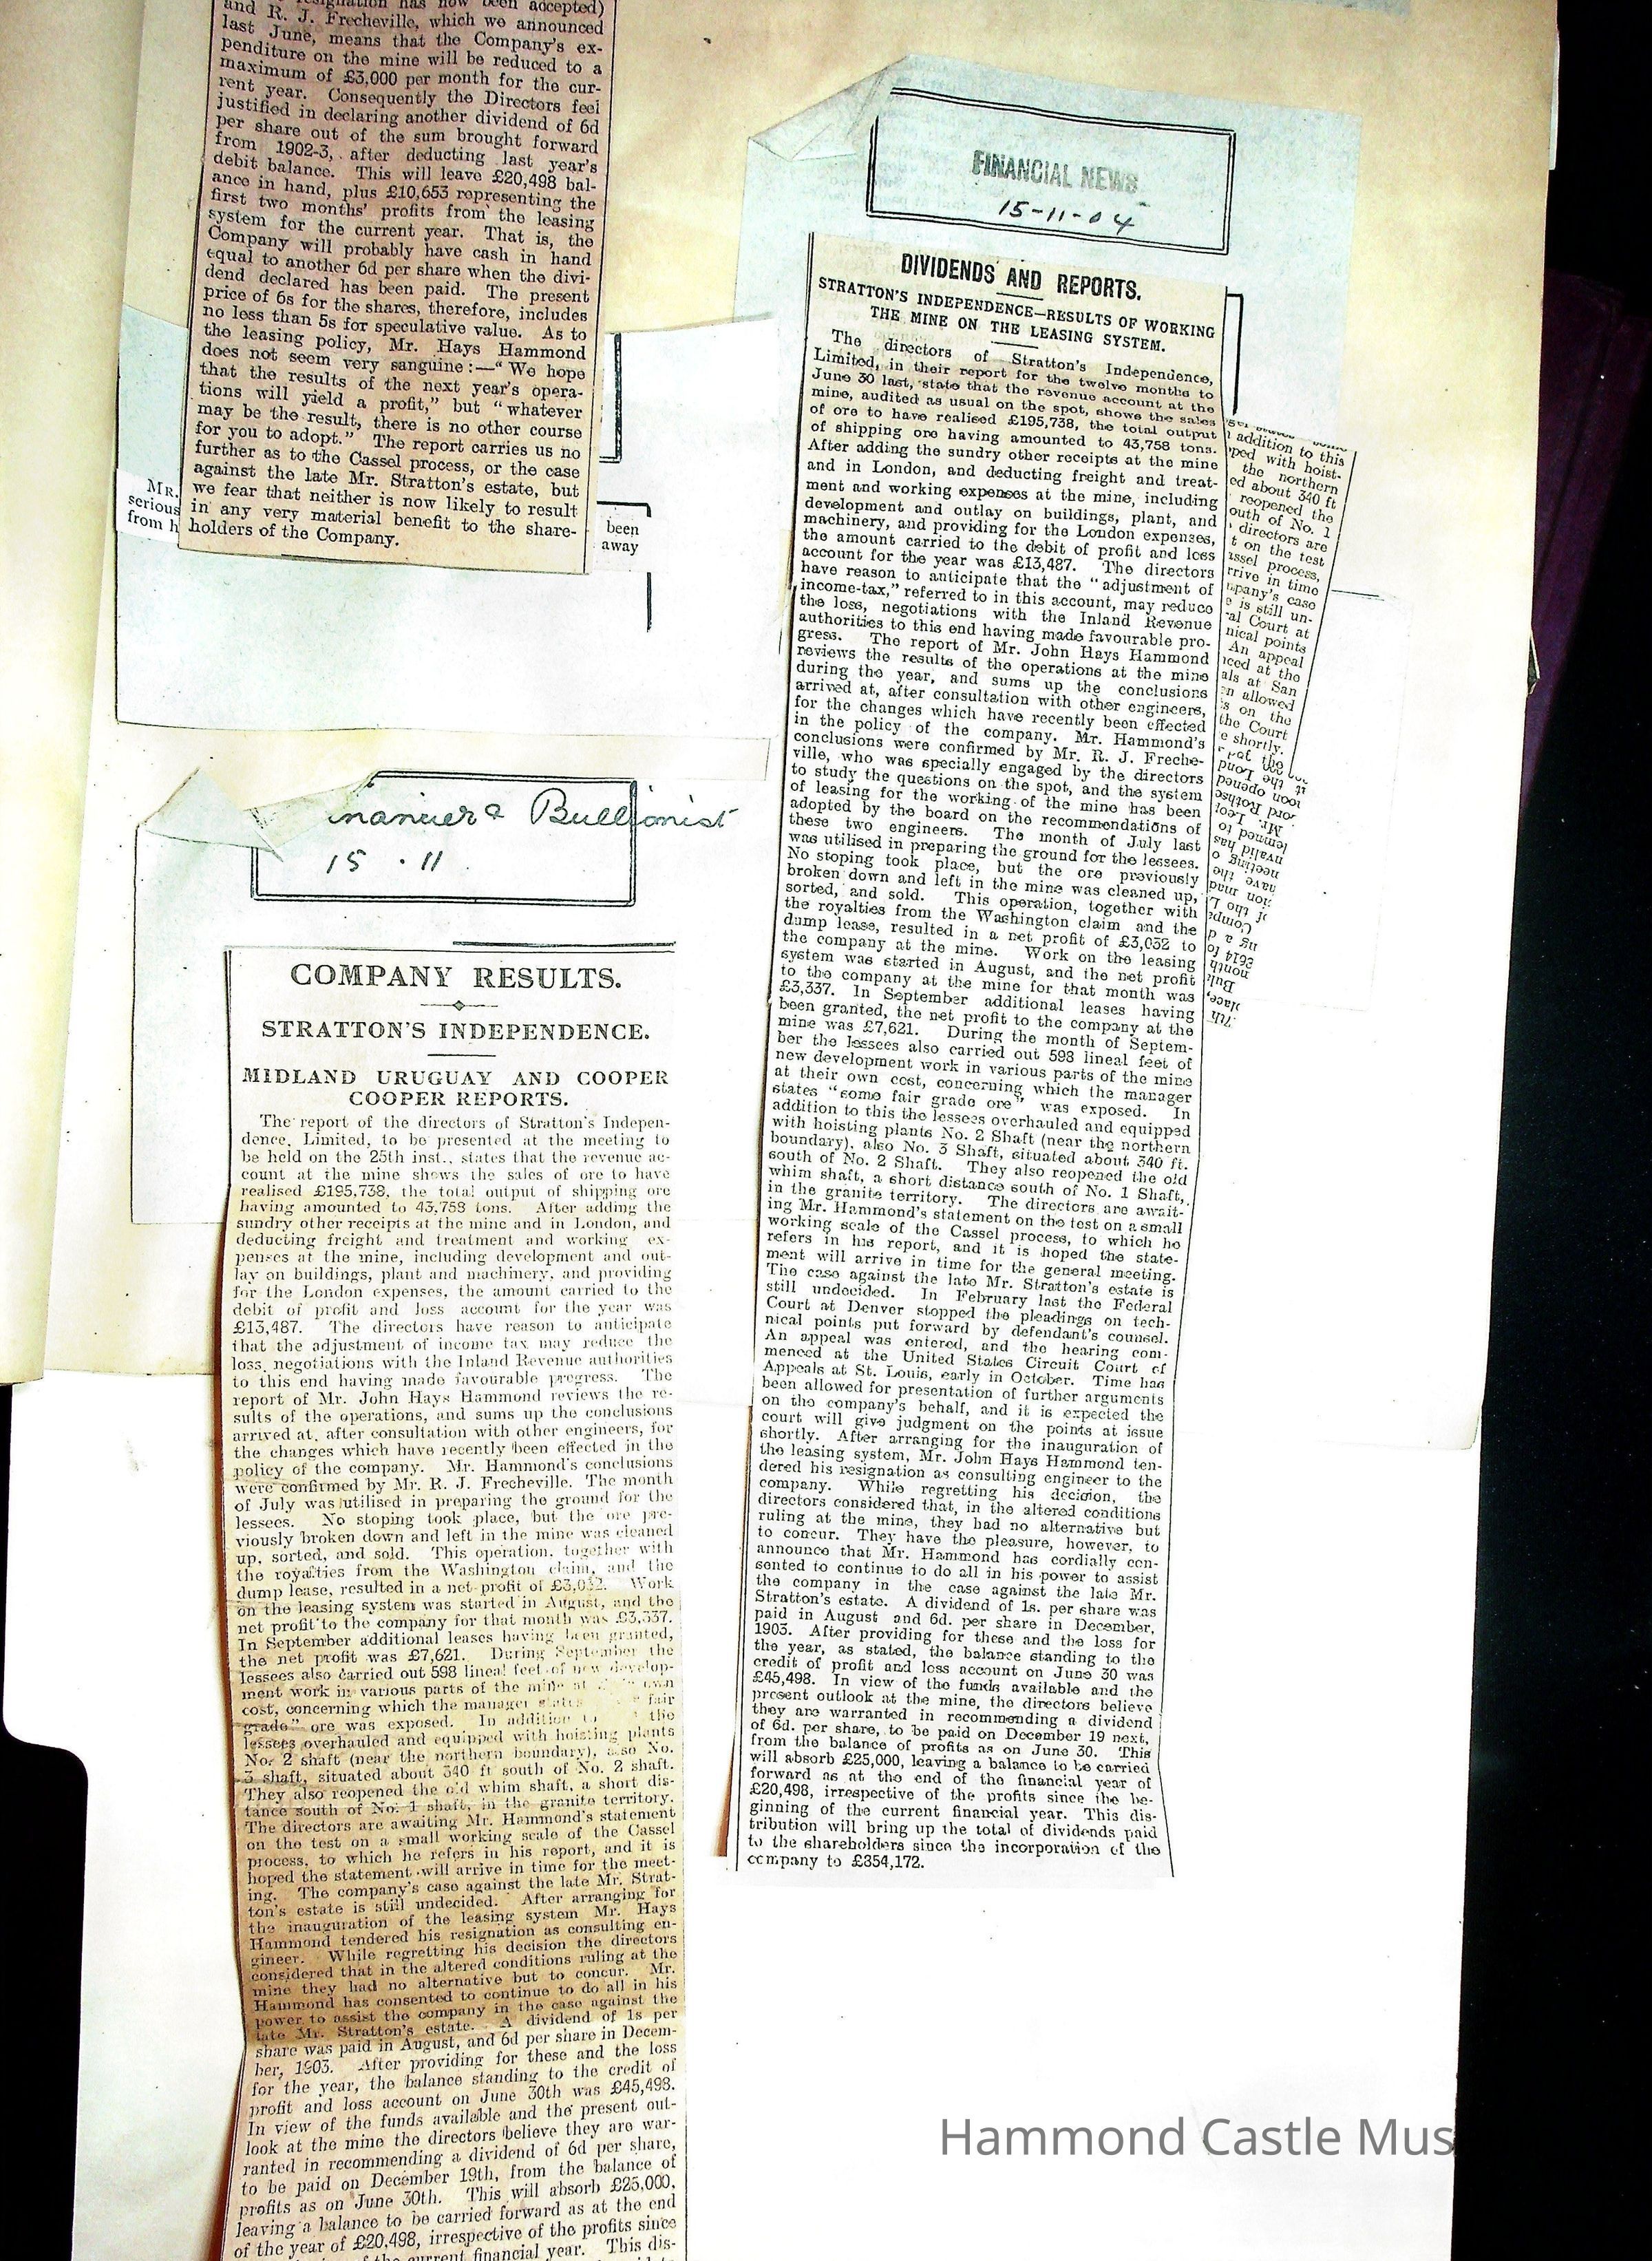 and R. J. Frecheville, which we announced
last June, means that the Company's ex-
penditure on the mine will be reduced to a
maximum of £3,000 per month for the cur-
rent year. Consequently the Directors feel
justified in declaring another dividend of 6d
per share out of the sum brought forward
from 1902-3, after deducting last year's
debit balance. This will leave £20,498 bal-
ance in hand, plus £10,653 representing the
first two months' profits from the leasing
system for the current year. That is, the
Company will probably have cash in hand
equal to another 6d per share when the divi-
dend declared has been paid. The present
price of 6s for the shares, therefore, includes
no less than 5s for speculative value. As to
the leasing policy, Mr. Hays Hammond
does not seem very sanguine:—"We hope
that the results of the next year's opera-
tions will yield a profit," but "whatever
may be the result, there is no other course
for you to adopt." The report carries us no
further as to the Cassel process, or the case
against the late Mr. Stratton's estate, but
we fear that neither is now likely to result
in any very material benefit to the share-
holders of the Company.
MR.
serious
from h
been
away
Bullionist
15 . 11
COMPANY RESULTS.
STRATTON'S INDEPENDENCE.
MIDLAND URUGUAY AND COOPER
COOPER REPORTS.
The report of the directors of Stratton's Indepen-
dence, Limited, to be presented at the meeting to
be held on the 25th inst., states that the revenue ac-
count at the mine shows the sales of ore to have
realised £195,738, the total output of shipping ore
having amounted to 43,758 tons. After adding the
sundry other receipts at the mine and in London, and
deducting freight and treatment and working ex-
penses at the mine, including development and out-
lay on buildings, plant and machinery, and providing
for the London expenses, the amount carried to the
debit of profit and loss account for the year was
£13,487. The directors have reason to anticipate
that the adjustment of income tax may reduce the
loss, negotiations with the Inland Revenue authorities
to this end having made favourable progress. The
report of Mr. John Hays Hammond reviews the re-
sults of the operations, and sums up the conclusions
arrived at, after consultation with other engineers, for
the changes which have recently been effected in the
policy of the company. Mr. Hammond's conclusions
were confirmed by Mr. R. J. Frecheville. The month
of July was utilised in preparing the ground for the
lessees. No stoping took place, but the ore pre-
viously broken down and left in the mine was cleaned
up, sorted, and sold. This operation, together with
the royalties from the Washington claim, and the
dump lease, resulted in a net profit of £3,032. Work
on the leasing system was started in August, and the
net profit to the company for that month was £3,337.
In September additional leases having been granted,
the net profit was £7,621. During September the
lessees also carried out 598 lineal feet of new develop-
ment work in various parts of the mine at own
cost, concerning which the manager states fair
grade" ore was exposed. In addition the
lessees overhauled and equipped with hoisting plants
No. 2 shaft (near the northern boundary), also No.
3 shaft, situated about 340 ft south of No. 2 shaft.
They also reopened the old whim shaft, a short dis-
tance south of No. 1 shaft, in the granite territory.
The directors are awaiting Mr. Hammond's statement
on the test on a small working scale of the Cassel
process, to which he refers in his report, and it is
hoped the statement will arrive in time for the meet-
ing. The company's case against the late Mr. Strat-
ton's estate is still undecided. After arranging for
the inauguration of the leasing system Mr. Hays
Hammond tendered his resignation as consulting en-
gineer. While regretting his decision the directors
considered that in the altered conditions ruling at the
mine they had no alternative but to concur. Mr.
Hammond has consented to continue to do all in his
power to assist the company in the case against the
late Mr. Stratton's estate. A dividend of 1s per
share was paid in August, and 6d per share in Decem-
ber, 1903. After providing for these and the loss
for the year, the balance standing to the credit of
profit and loss account on June 30th was £45,498.
In view of the funds available and the present out-
look at the mine the directors believe they are war-
ranted in recommending a dividend of 6d per share,
to be paid on December 19th, from the balance of
profits as on June 30th. This will absorb £25,000,
leaving a balance to be carried forward as at the end
of the year of £20,498, irrespective of the profits since
current financial year. This dis-
FINANCIAL NEWS
15-11-04
DIVIDENDS AND REPORTS.
STRATTON'S INDEPENDENCE—RESULTS OF WORKING
THE MINE ON THE LEASING SYSTEM.
The directors of Stratton's Independence,
Limited, in their report for the twelve months to
June 30 last, state that the revenue account at the
mine, audited as usual on the spot, shows the sales
of ore to have realised £195,738, the total output
of shipping ore having amounted to 43,758 tons.
After adding the sundry other receipts at the mine
and in London, and deducting freight and treat-
ment and working expenses at the mine, including
development and outlay on buildings, plant, and
machinery, and providing for the London expenses,
the amount carried to the debit of profit and loss
account for the year was £13,487. The directors
have reason to anticipate that the "adjustment of
income-tax," referred to in this account, may reduce
the loss, negotiations with the Inland Revenue
authorities to this end having made favourable pro-
gress. The report of Mr. John Hays Hammond
reviews the results of the operations at the mine
during the year, and sums up the conclusions
arrived at, after consultation with other engineers,
for the changes which have recently been effected
in the policy of the company. Mr. Hammond's
conclusions were confirmed by Mr. R. J. Freche-
ville, who was specially engaged by the directors
to study the questions on the spot, and the system
of leasing for the working of the mine has been
adopted by the board on the recommendations of
these two engineers. The month of July last
was utilised in preparing the ground for the lessees.
No stoping took place, but the ore previously
broken down and left in the mine was cleaned up,
sorted, and sold. This operation, together with
the royalties from the Washington claim and the
dump lease, resulted in a net profit of £3,032 to
the company at the mine. Work on the leasing
system was started in August, and the net profit
to the company at the mine for that month was
£3,337. In September additional leases having
been granted, the net profit to the company at the
mine was £7,621. During the month of Septem-
ber the lessees also carried out 598 lineal feet of
new development work in various parts of the mine
at their own cost, concerning which the manager
states "some fair grade ore" was exposed. In
addition to this the lessees overhauled and equipped
with hoisting plants No. 2 Shaft (near the northern
boundary), also No. 3 Shaft, situated about 340 ft.
south of No. 2 Shaft. They also reopened the old
whim shaft, a short distance south of No. 1 Shaft,
in the granite territory. The directors are await-
ing Mr. Hammond's statement on the test on a small
working scale of the Cassel process, to which he
refers in his report, and it is hoped the state-
ment will arrive in time for the general meeting.
The case against the late Mr. Stratton's estate is
still undecided. In February last the Federal
Court at Denver stopped the pleadings on tech-
nical points put forward by defendant's counsel.
An appeal was entered, and the hearing com-
menced at the United States Circuit Court of
Appeals at St. Louis, early in October. Time has
been allowed for presentation of further arguments
on the company's behalf, and it is expected the
court will give judgment on the points at issue
shortly. After arranging for the inauguration of
the leasing system, Mr. John Hays Hammond ten-
dered his resignation as consulting engineer to the
company. While regretting his decision, the
directors considered that, in the altered conditions
ruling at the mine, they had no alternative but
to concur. They have the pleasure, however, to
announce that Mr. Hammond has cordially con-
sented to continue to do all in his power to assist
the company in the case against the late Mr.
Stratton's estate. A dividend of 1s. per share was
paid in August and 6d. per share in December,
1903. After providing for these and the loss for
the year, as stated, the balance standing to the
credit of profit and loss account on June 30 was
£45,498. In view of the funds available and the
present outlook at the mine, the directors believe
they are warranted in recommending a dividend
of 6d. per share, to be paid on December 19 next,
from the balance of profits as on June 30. This
will absorb £25,000, leaving a balance to be carried
forward as at the end of the financial year of
£20,498, irrespective of the profits since the be-
ginning of the current financial year. This dis-
tribution will bring up the total of dividends paid
to the shareholders since the incorporation of the
company to £354,172.
addition to this
ped with hoist-
the northern
ed about 340 ft
reopened the
outh of No. 1
directors are
t on the test
assel process,
rrive in time
mpany's case
e is still un-
al Court at
nical points
An appeal
nced at the
als at San
en allowed
ts on the
the Court
e shortly.
Hammond Castle Mus